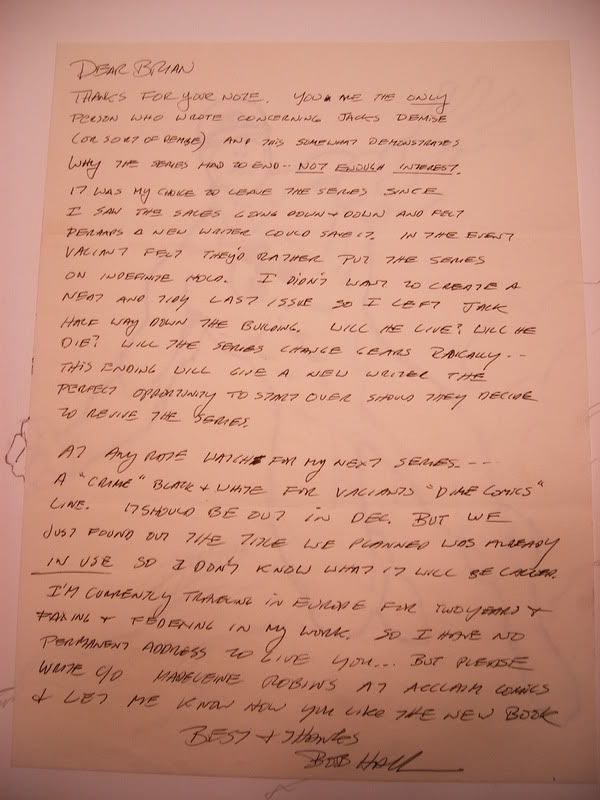 DEAR BRIAN
THANKS FOR YOUR NOTE. YOU ARE THE ONLY
PERSON WHO WROTE CONCERNING JACKS DEMISE
(OR SORT OF DEMISE) AND THIS SOMEWHAT DEMONSTRATES
WHY THE SERIES HAD TO END-- NOT ENOUGH INTEREST.
IT WAS MY CHOICE TO LEAVE THE SERIES SINCE
I SAW THE SALES GOING DOWN & DOWN AND FELT
PERHAPS A NEW WRITER COULD SAVE IT. IN THE EVENT
VALIANT FELT THEY'D RATHER PUT THE SERIES
ON INDEFINITE HOLD. I DIDN'T WANT TO CREATE A
NEAT AND TIDY LAST ISSUE SO I LEFT JACK
HALF WAY DOWN THE BUILDING. WILL HE LIVE? WILL HE
DIE? WILL THE SERIES CHANGE GEARS RADICALLY--
THIS ENDING WILL GIVE A NEW WRITER THE
PERFECT OPPORTUNITY TO START OVER SHOULD THEY DECIDE
TO REVIVE THE SERIES.
AT ANY RATE WATCH FOR MY NEXT SERIES.---
A "CRIME" BLACK & WHITE FOR VALIANTS "DIME COMICS"
LINE. IT SHOULD BE OUT IN DEC. BUT WE
JUST FOUND OUT THE TITLE WE PLANNED WAS ALREADY
IN USE SO I DON'T KNOW WHAT IT WILL BE CALLED.
I'M CURRENTLY TRAVELING IN EUROPE FOR TWO YEARS &
FAXING & FEDEXING IN MY WORK. SO I HAVE NO
PERMANENT ADDRESS TO GIVE YOU... BUT PLEASE
WRITE C/O MADELEINE ROBINS AT ACCLAIM COMICS
& LET ME KNOW HOW YOU LIKE THE NEW BOOK
BEST & THANKS
BOB HALL